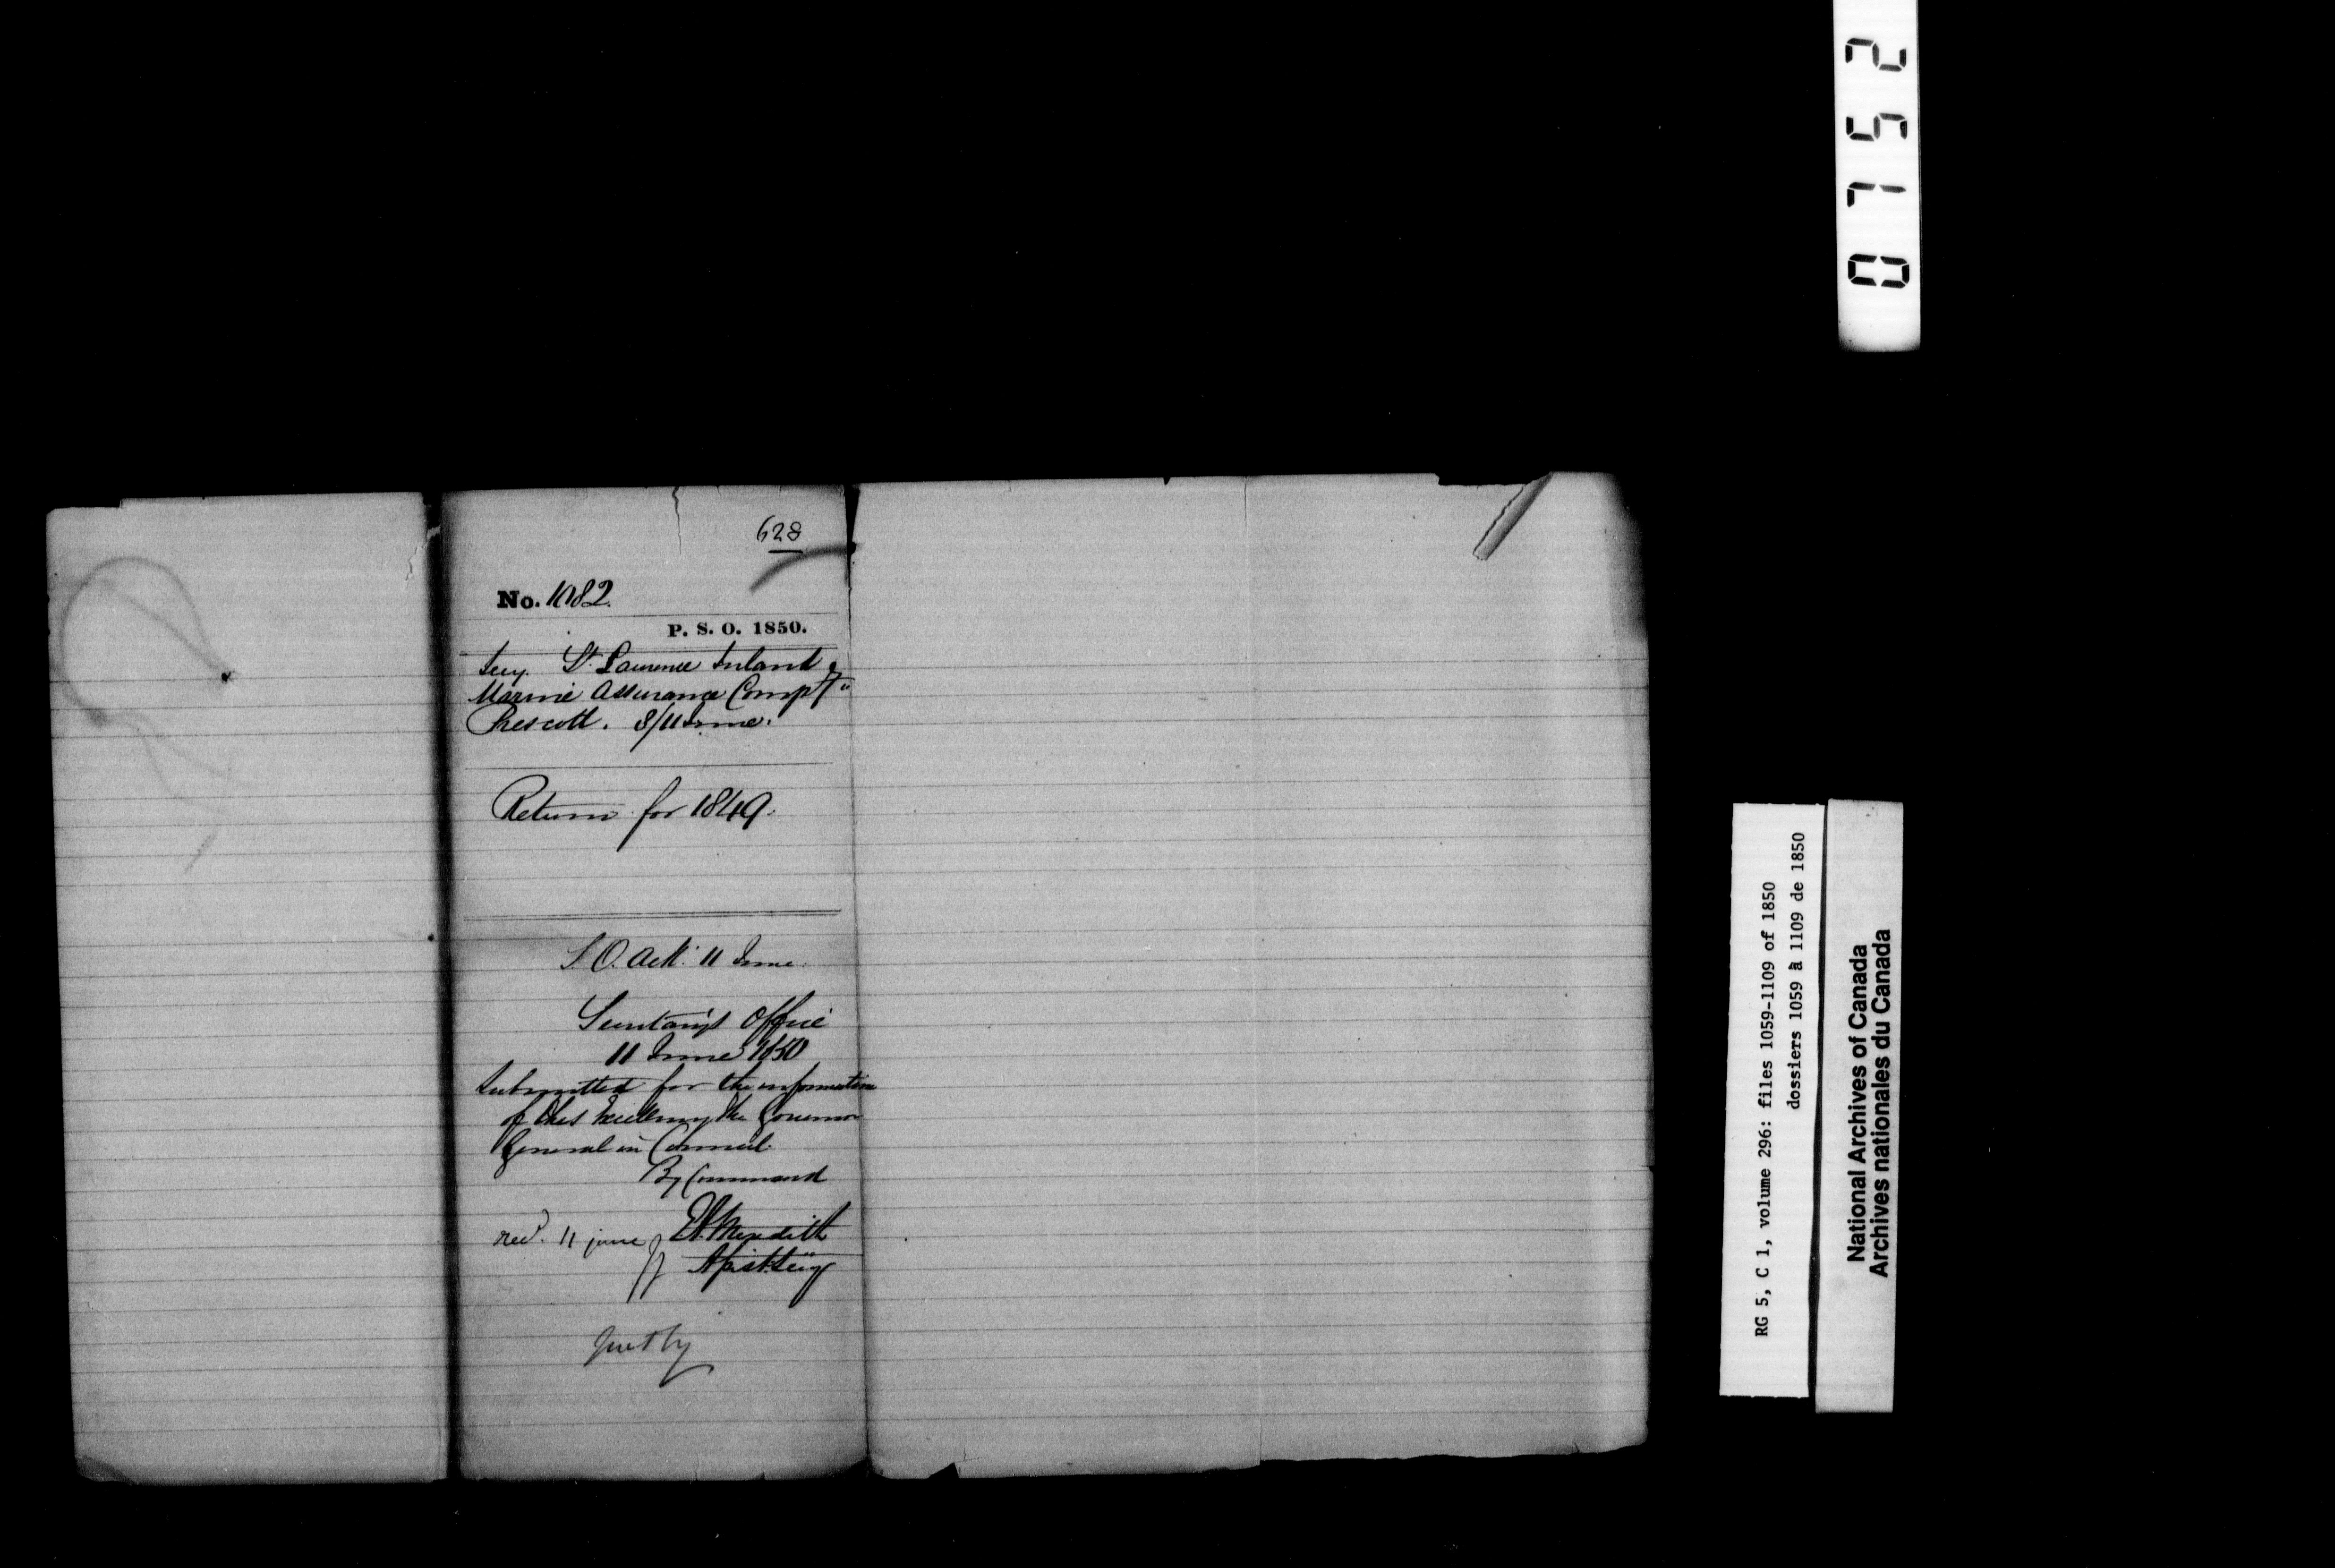 628
No. 1082.
P. S. O. 1850.
Secy. St. Lawrence Inland &
Marine Assurance Compy
Prescott. 8/11 June.
Return for 1849.
S. O. Ack. 11 June.
Secretary's Office
11 June 1850
Submitted for the information
of His Excellency the Governor
General in Council.
By Command
Recd. 11 june E A Meredith
Asist. Secy
0752
RG 5, C 1, volume 296: files 1059-1109 of 1850
dossiers 1059 à 1109 de 1850
National Archives of Canada
Archives nationales du Canada